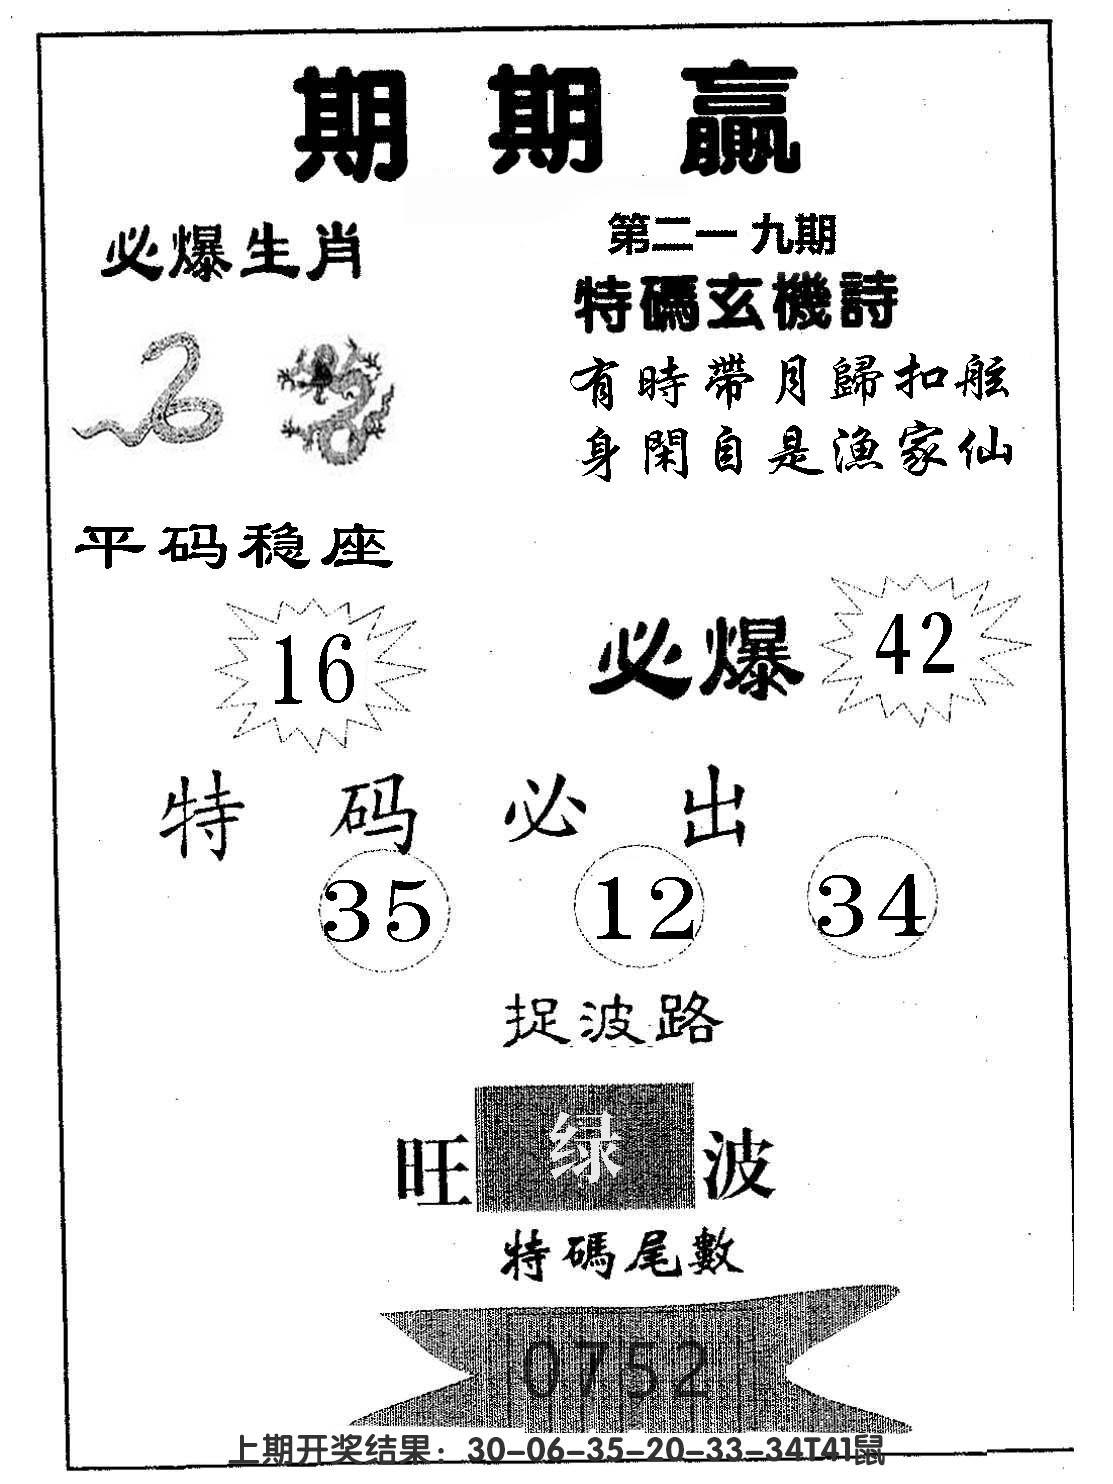 期期赢
必爆生肖
第二一九期
特碼玄機詩
有時帶月歸扣舷
身閑自是漁家仙
平码稳座
16
必爆
42
特码必出
35 12 34
捉波路
旺绿波
特碼尾數
0752
上期开奖结果：30-06-35-20-33-34T41鼠